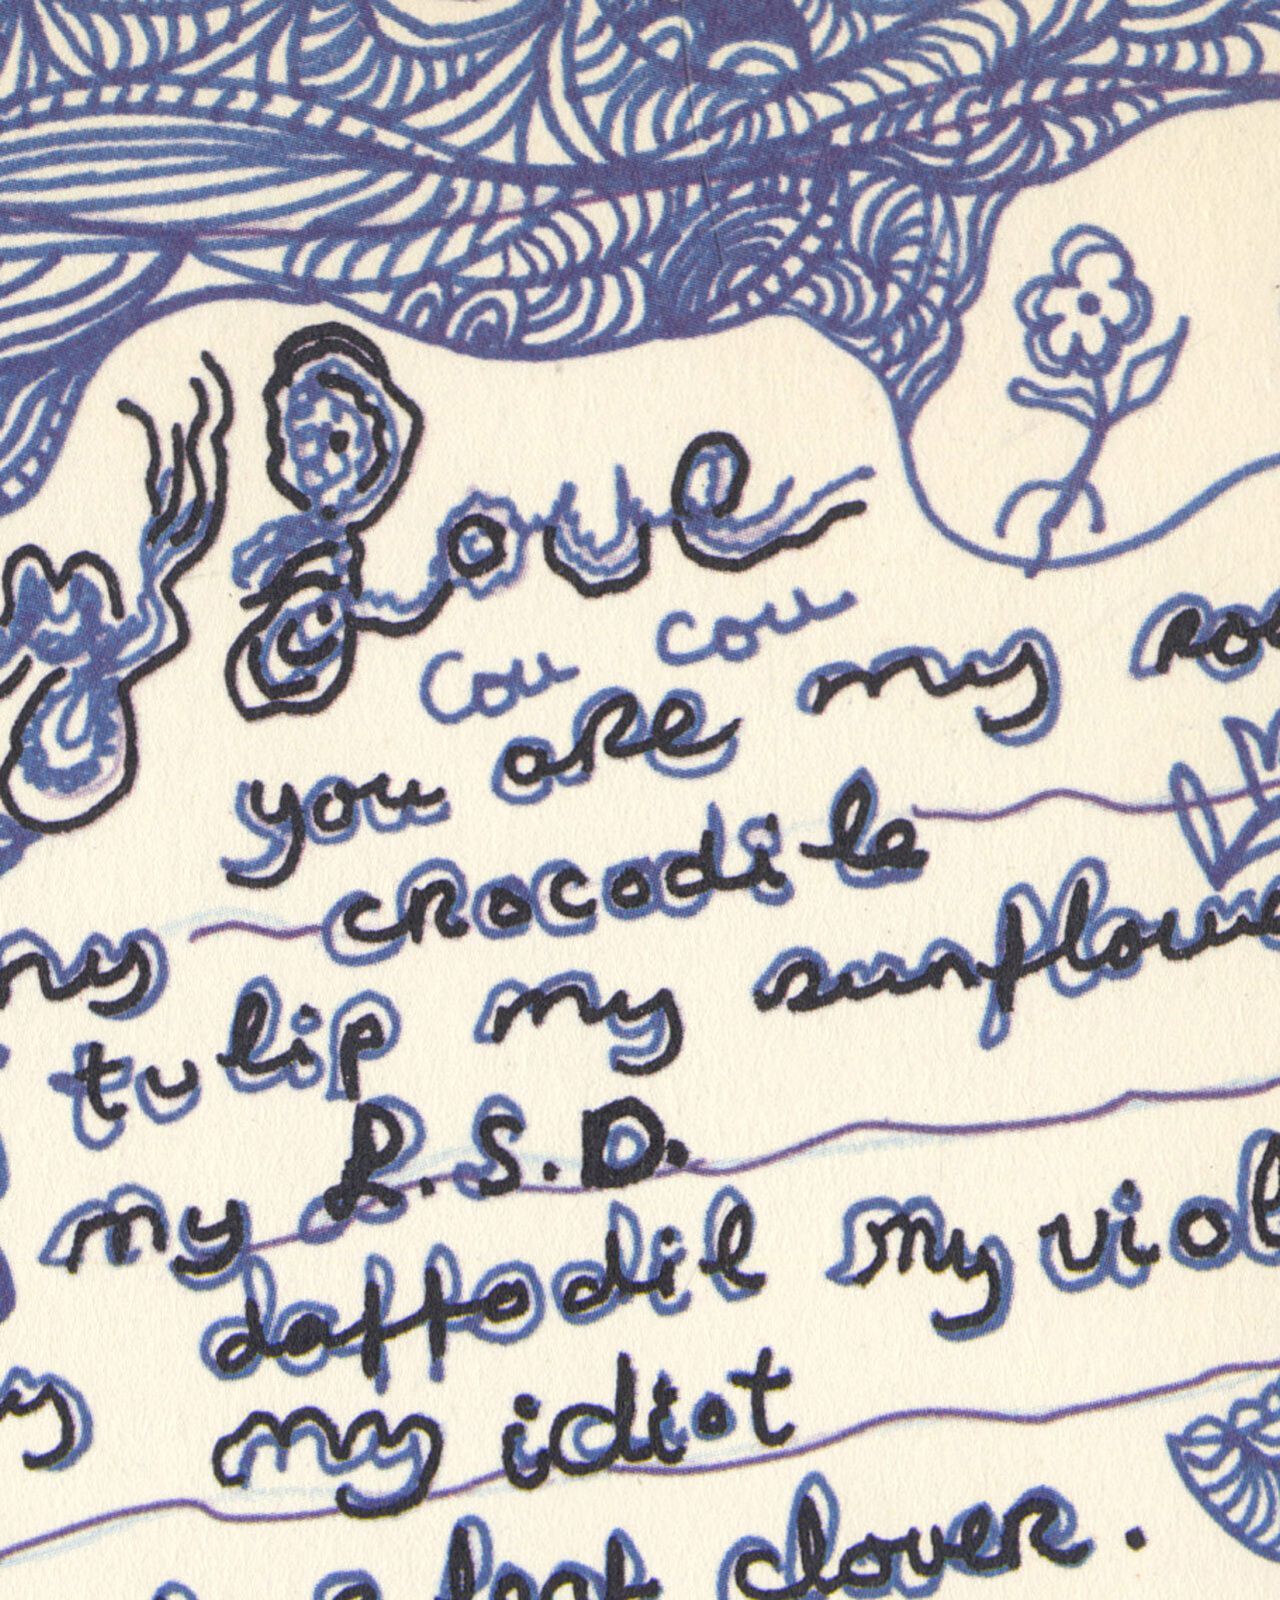 Love
cou cou
you are my
my crocodile
tulip my sunflowe
my L.S.D.
daffodil my viol
my idiot
leaf clover.